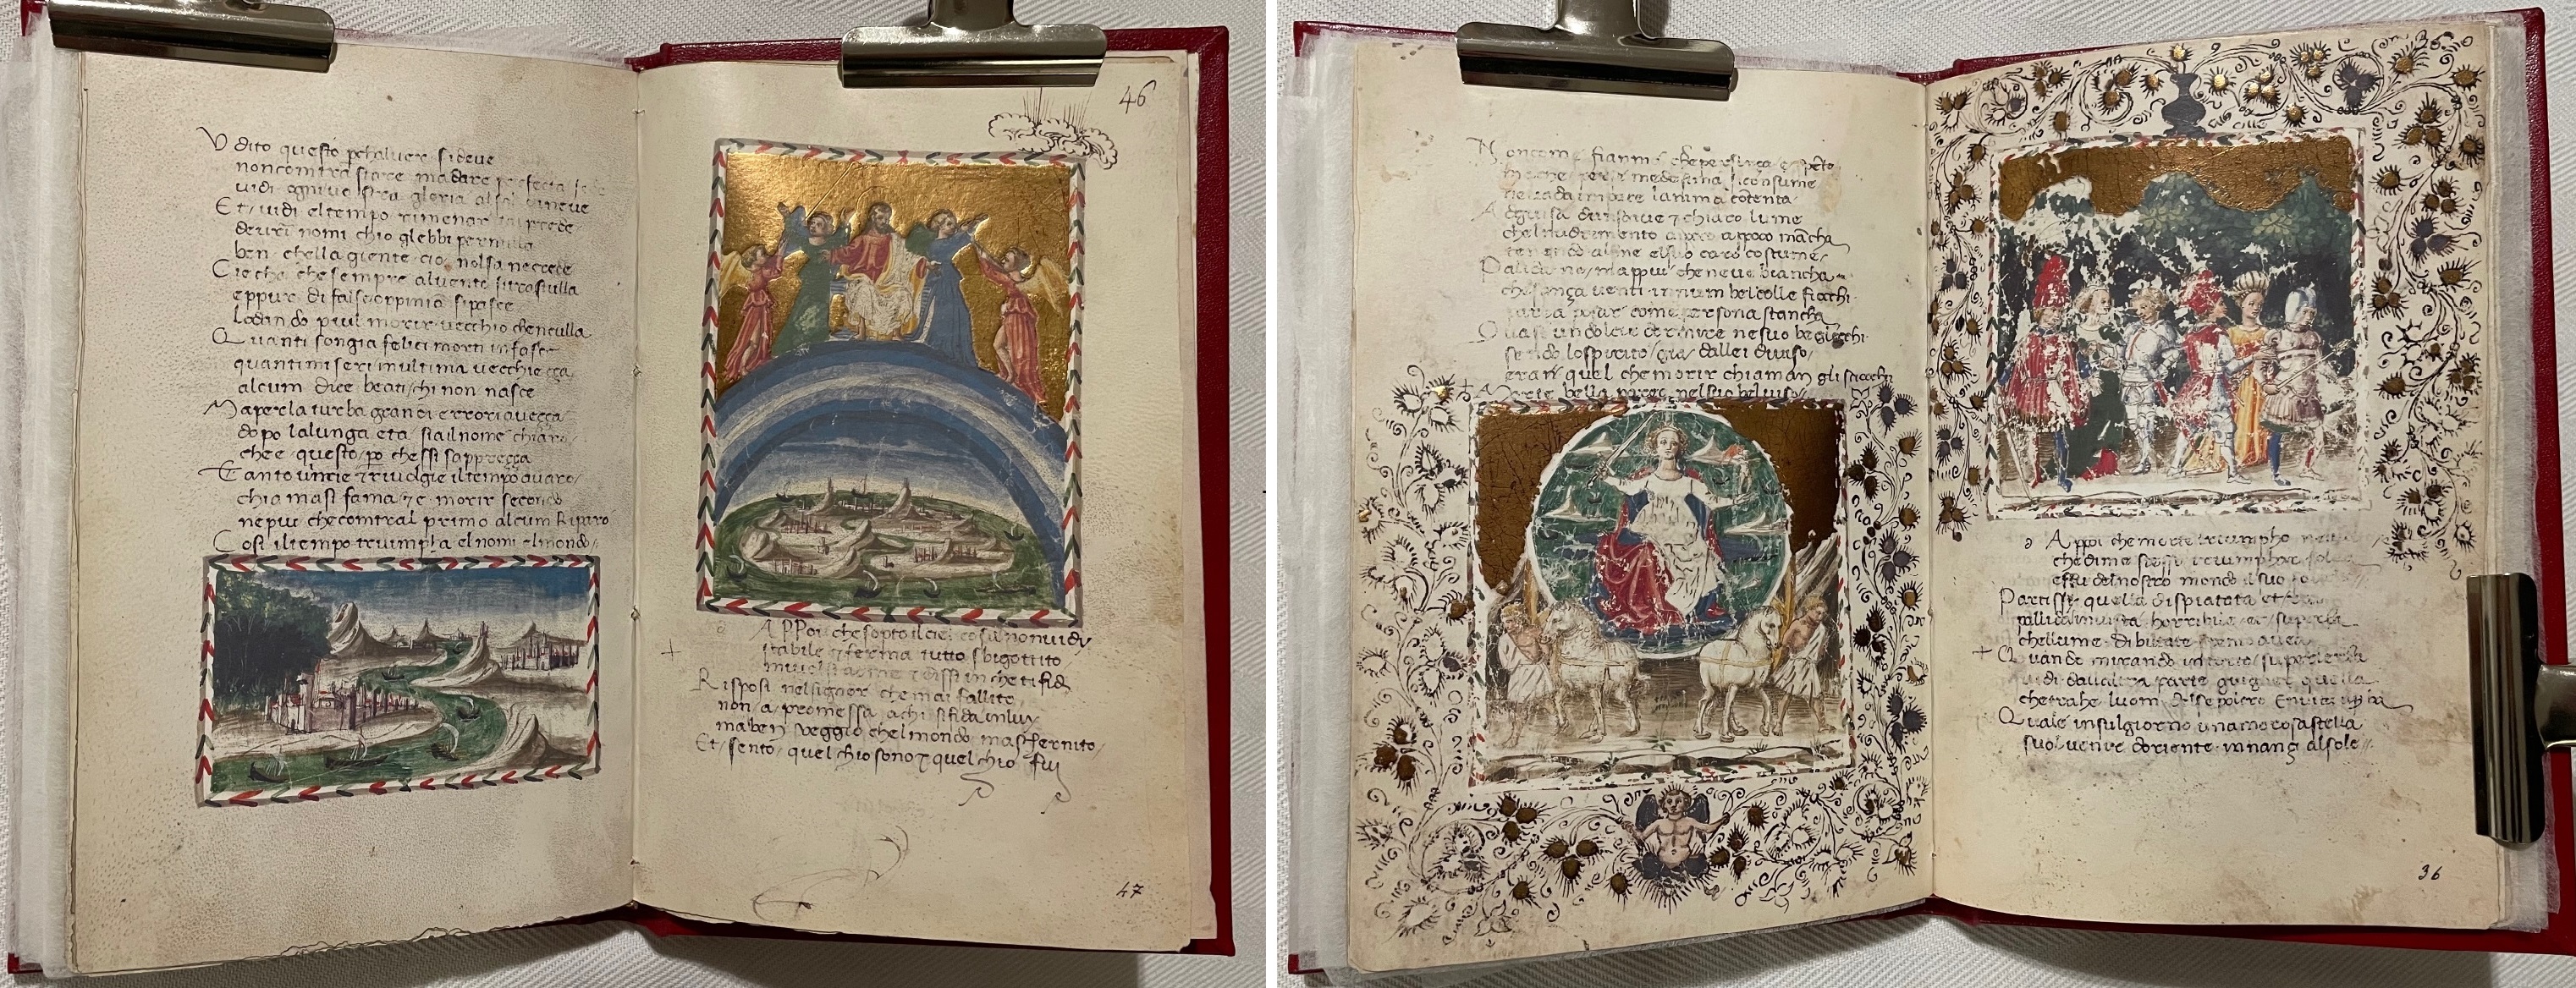 Udito questo p chalver si deve
non contra stare ma dare perfecta
vidi ogni vostra gloria al sol di neve
Et vidi el tempo rimenar tal prede
de vri nomi chio glebbi per nulla
ben chella giente cio nol sa ne crede
Ciecha che sempre al vento si trastulla
eppur di false oppinio si pasce
lodando piu l morir vecchio chen culla
Quanti son gia felici morti in fasce
quanti miseri in ultima vecchieçça
alcum dice beati chi non nasce
Ma per la turba grandi errori aveçça
dopo la lunga eta sia il nome chiaro
che e questo po che ssi sappreçça
Tanto vincie & rivolgie il tempo avaro
chiamasi fama & e morir secondo
ne piu che contral primo alcum riparo
Cosi il tempo triumpha e nomi el mondo
46
APPoi che sopto il ciel cosa non vidi
stabile & ferma tutto sbigottito
mi volsi a me & dissi in che ti fidi
Risposi nel signor che mai fallito
non a promessa a chi si fida in lui
ma ben veggio chel mondo mascernito
Et sento quel chio sono & quel chio fui
47
Non come fiamma che per força e spēto
ma che per se medesma si consume
in pace lanima cōtenta
A guisa dun soave & chiaro lume
chel nudrimento a poco a poco mācha
tenendo al fine el suo caro costume
Palida no ma piu che neve biancha
che sança venti in num bel colle fiocchi
parea posar come persona stancha
Quasi un dolce dormire ne suo be giocchi
sendo lo spirito gia dallei diviso
era quel che morir chiaman gli sciocchi
Morte bella parea nel suo bel viso
APpoi che morte triumpho nel
che di me stesso triumphar
et fu del nostro mondo il suo sol
Partissi quella dispiatata et
pallida in vista horribile et superba
chel lume di biltate spento avea
Quando mirando intorno su per lerba
vidi dallaltra parte giugner quella
che trahe luom del sepolcro
Quale in sul giorno una morosa stella
suol venir doriente innanç al sole
36